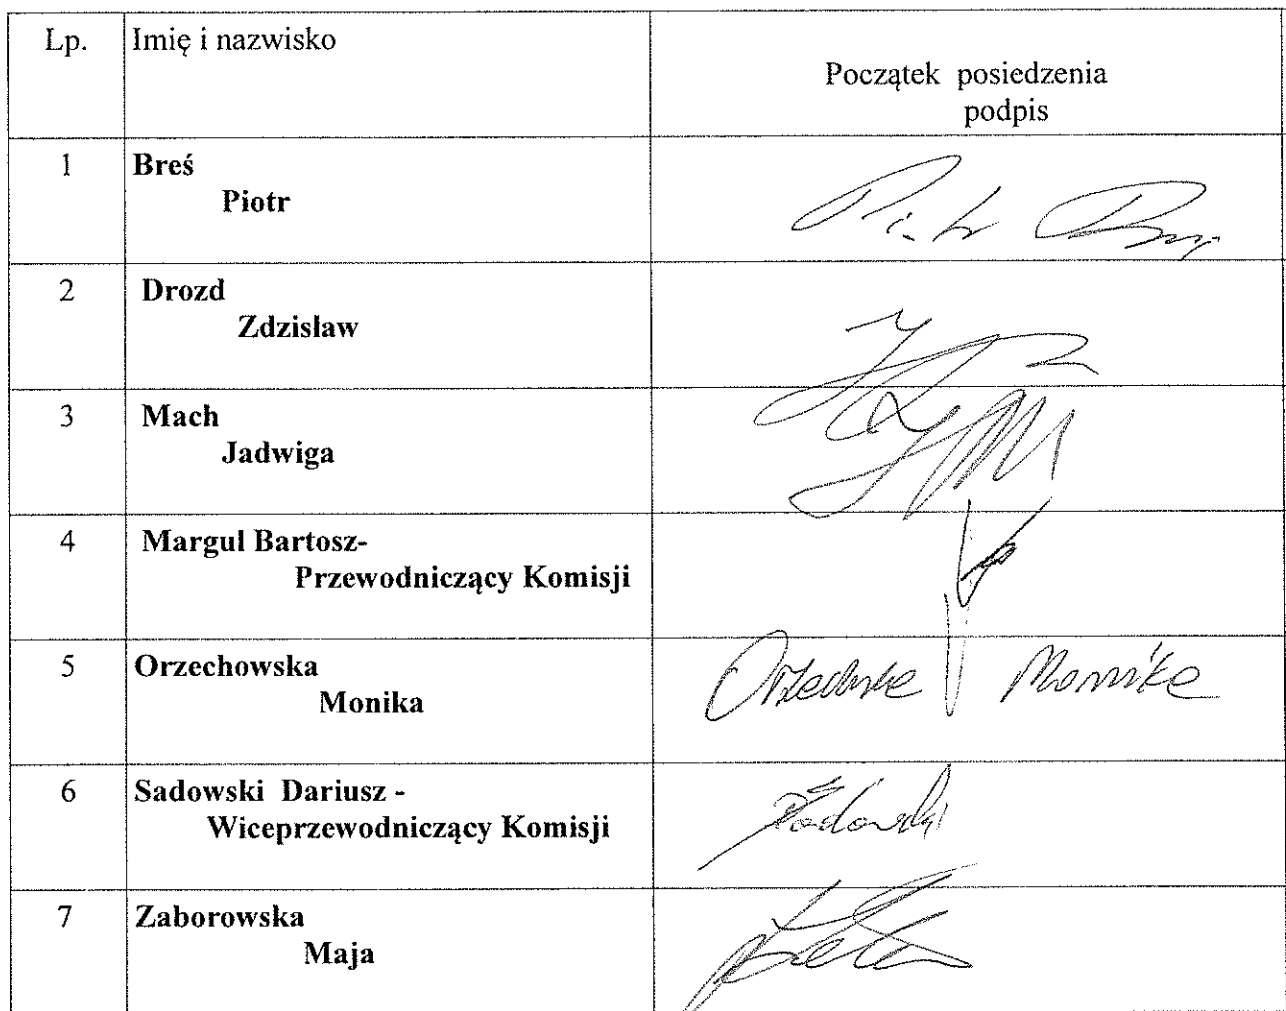 Lp.
Imię i nazwisko
Początek posiedzenia
podpis
1
Breś
Piotr
Piotr
2
Drozd
Zdzisław
3
Mach
Jadwiga
4
Margul Bartosz-
Przewodniczący Komisji
5
Orzechowska
Monika
Monika
6
Sadowski Dariusz -
Wiceprzewodniczący Komisji
Sadowski
7
Zaborowska
Maja